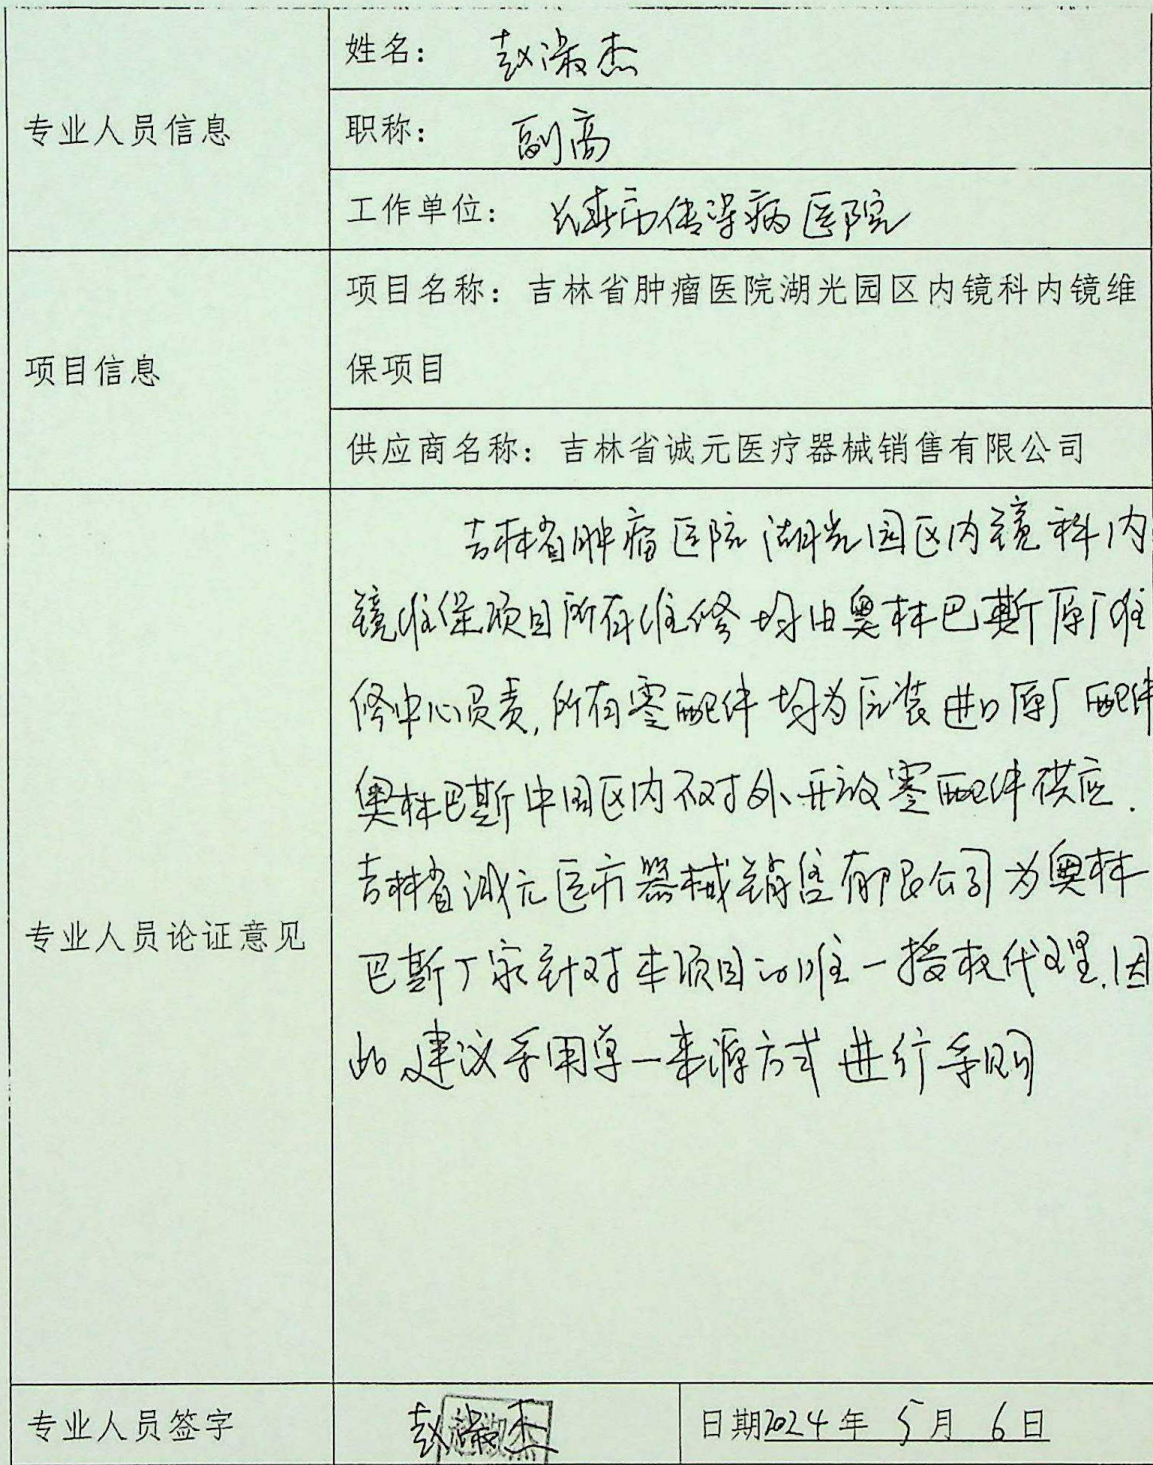 专业人员信息
姓名： 赵淑杰
职称： 副高
工作单位： 长春市传染病医院
项目信息
项目名称：吉林省肿瘤医院湖光园区内镜科内镜维
保项目
供应商名称：吉林省诚元医疗器械销售有限公司
专业人员论证意见
吉林省肿瘤医院湖光园区内镜科内
镜维保项目所有维修均由奥林巴斯原厂维
修中心负责,所有零配件均为原装进口原厂配件
奥林巴斯中国区内不对外开放零配件供应.
吉林省诚元医疗器械销售有限公司为奥林
巴斯厂家针对本项目的唯一授权代理.因
此建议采用单一来源方式进行采购
专业人员签字
赵淑杰
日期2024年 5月 6日